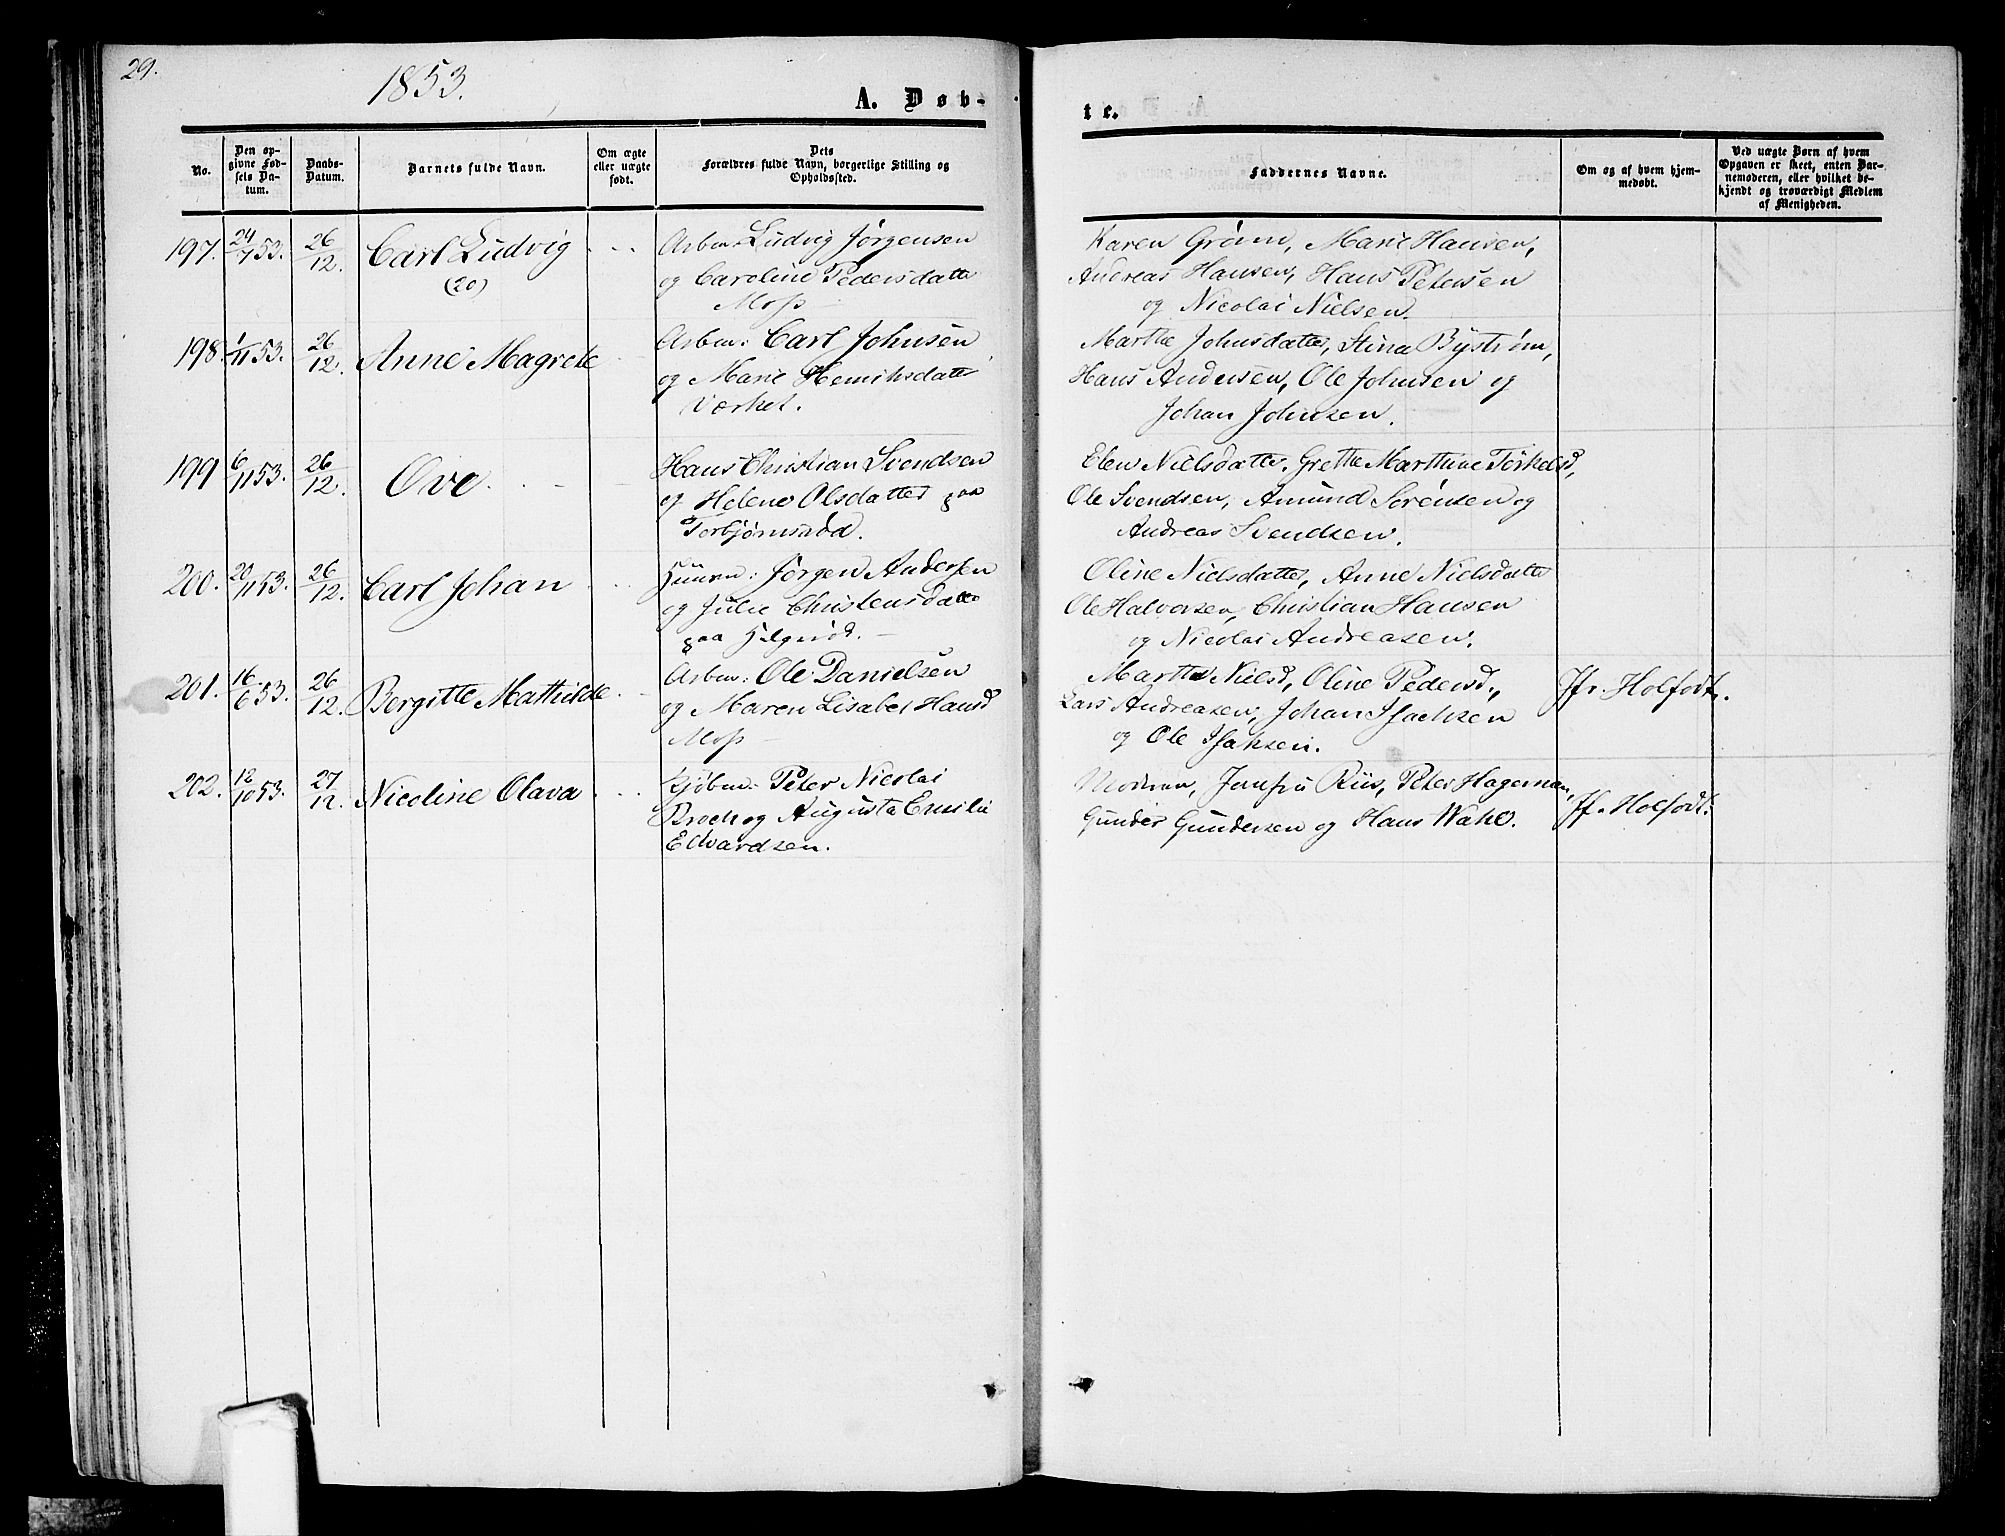 29.
1853.
A. Døb-
te.
No.
Den op-
givne Fød-
sels Da-
tum.
Daabs-
Datum.
Barnets fulde Navn.
Om ægte
eller uægte
født.
Dets
Forældres fulde Navn, borgerlige Stilling og
Opholdssted.
Faddernes Navne.
Om og af hvem hjem-
medøbt.
Ved uægte Børn af hvem
Opgaven er skeet, enten Bar-
nemoderen, eller hvilket be-
kjendt og troværdigt Medlem
af Menigheden.
197. 24/7 53. 26/12. Carl Ludvig
(20)
Arbm: Ludvig Jørgensen
og Caroline Pedersdatter
Moss
Karen Grønn, Marie Hansen,
Andreas Hansen, Hans Petersen
og Nicolai Nielsen.
198. 1/11 53. 26/12. Anne Magrete
Arbm: Carl Johnsen
og Marie Henriksdatter
Værket.
Marthe Johnsdatter, Stina Byström,
Hans Andersen, Ole Johnsen og
Johan Johnsen.
199 6/11 53. 26/12. Ove.
Hans Christian Svendsen
og Helene Olsdatter paa
Torbjørnsrød.
Elen Nielsdatter, Grethe Marthine Torkelsd,
Ole Svendsen, Amund Sørensen og
Andreas Svendsen.
200. 20/11 53. 26/12. Carl Johan
Huusm: Jørgen Andersen
og Julie Christensdatter
paa Helgerød.
Oline Nielsdatter, Anne Nielsdatter
Ole Halvorsen, Christian Hansen
og Nicolai Andreasen.
201. 16/6 53. 26/12. Bergitte Mathilde
Arbm: Ole Danielsen
og Maren Lisabet Hansd
Moss
Marthe Nielsd, Oline Pedersd.,
Lars Andreasen, Johan Isachsen
og Ole Isaksen.
Jfr. Holfodt.
202. 12/10 53. 27/12. Nicoline Olava
Kjøbm: Peter Nicolai
Broch og Augusta Emilie
Edvardsen.
Modren, Jomfru Riis, Peter Hageman,
Gunder Gundersen og Hans Wahl.
Jf. Holfodt.